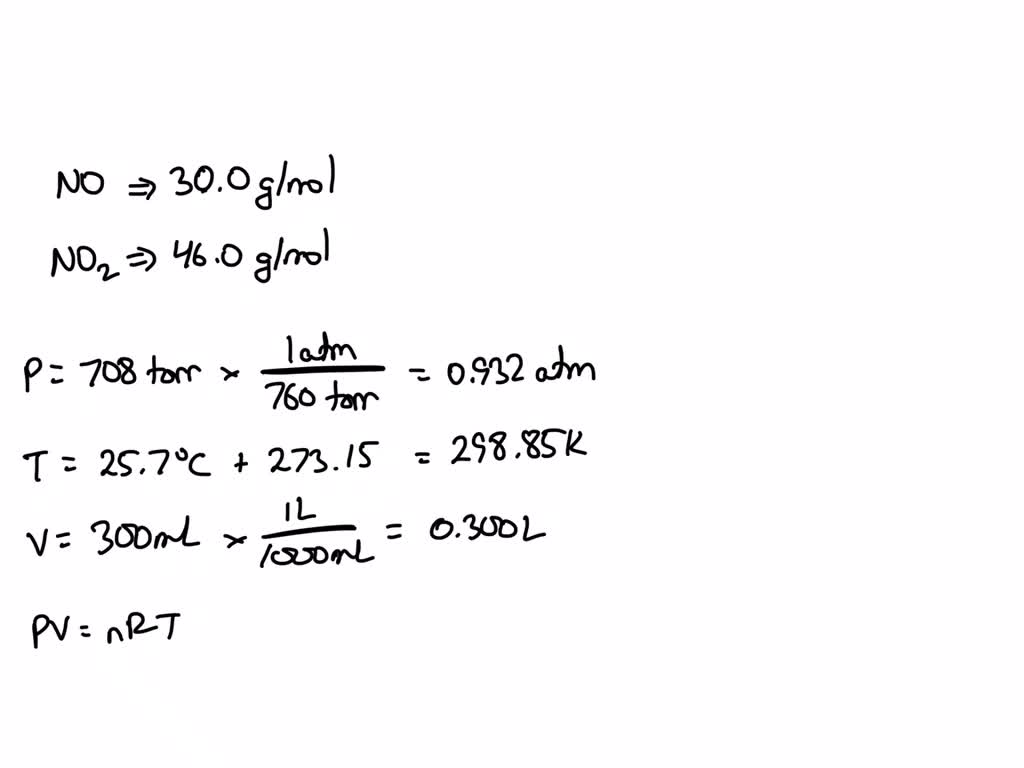 NO ⇒ 30.0 g/mol
NO₂ ⇒ 46.0 g/mol
P = 708 torr × 1 atm / 760 torr = 0.932 atm
T = 25.7°C + 273.15 = 298.85K
V = 300mL × 1L / 1000mL = 0.300L
PV = nRT